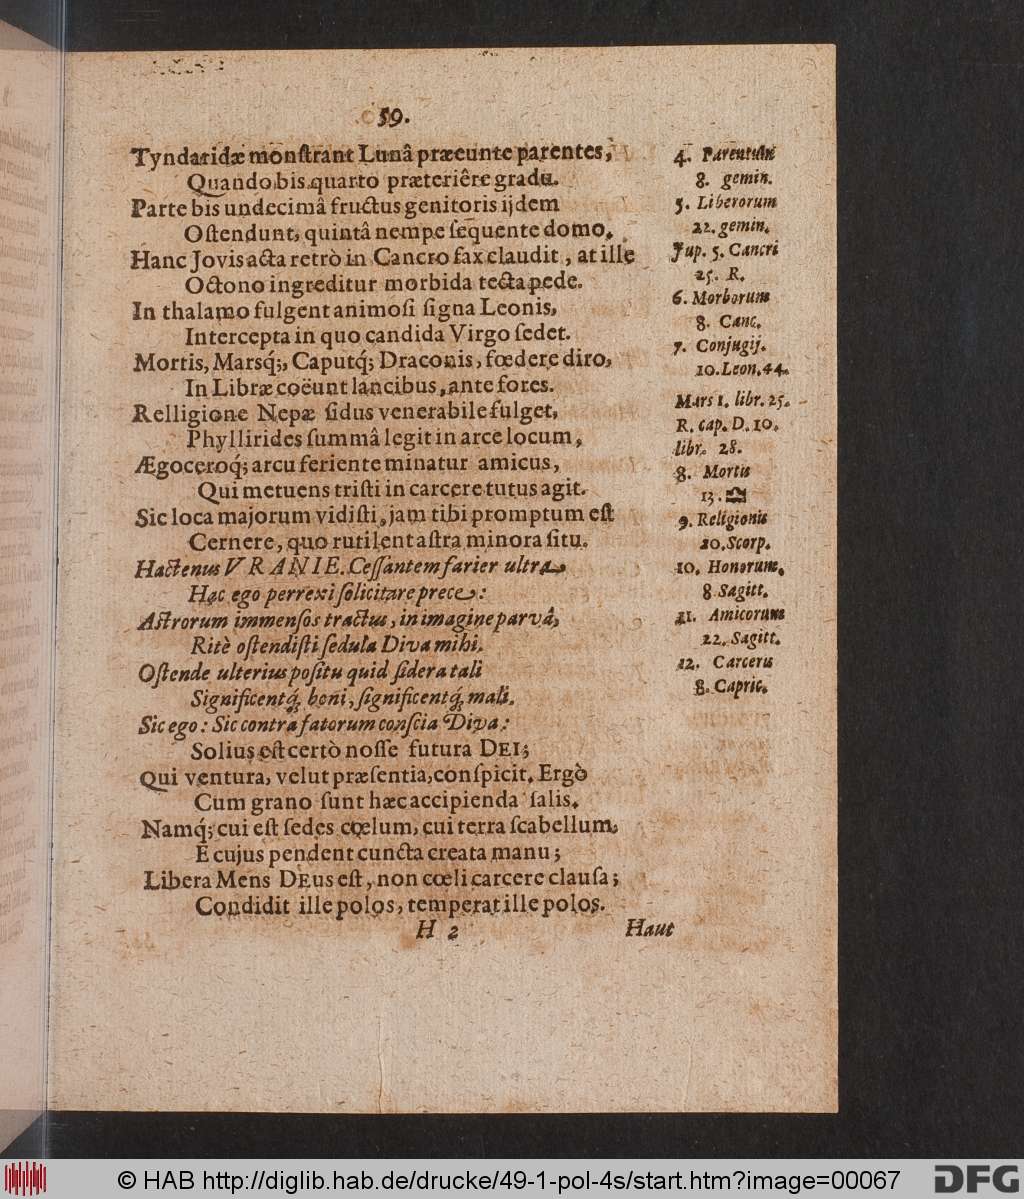 59.
Tyndaridæ monſtrant Lunâ præeunte parentes,
Quando bis quarto præteriêre gradu.
Parte bis undecimâ fructus genitoris ijdem
Oſtendunt, quintâ nempe ſequente domo.
Hanc Jovis acta retrò in Cancro fax claudit, at ille
Octono ingreditur morbida tecta pede.
In thalamo fulgent animoſi ſigna Leonis,
Intercepta in quo candida Virgo ſedet.
Mortis, Marsq́;, Caputq́; Draconis, fœdere diro,
In Libræ coëunt lancibus, ante fores.
Relligione Nepæ ſidus venerabile fulget,
Phyllirides ſummâ legit in arce locum,
Ægoceroq́; arcu feriente minatur amicus,
Qui metuens triſti in carcere tutus agit.
Sic loca majorum vidiſti, jam tibi promptum eſt
Cernere, quo rutilent aſtra minora ſitu.
Hactenus VRANIE. Ceſſantem farier ultra
Hac ego perrexi ſolicitare prece:
Aſtrorum immenſos tractus, in imagine parvâ,
Ritè oſtendiſti ſedula Diva mihi.
Oſtende ulterius poſitu quid ſidera tali
Significentq́, boni, ſignificentq́, mali.
Sic ego: Sic contra fatorum conſcia Diva:
Solius eſt certò noſſe futura DEI;
Qui ventura, velut præſentia, conſpicit. Ergò
Cum grano ſunt hæc accipienda ſalis.
Namq́; cui eſt ſedes cœlum, cui terra ſcabellum,
E cujus pendent cuncta creata manu;
Libera Mens DEus eſt, non cœli carcere clauſa;
Condidit ille polos, temperat ille polos.
H 2
Haut
4. Parentum
8. gemin.
5. Liberorum
22. gemin.
Jup. 5. Cancri
25. R.
6. Morborum
8. Canc.
7. Conjugij.
10. Leon. 44.
Mars 1. libr. 25.
R. cap. D. 10.
libr. 28.
8. Mortis
13. ♎
9. Religionis
20. Scorp.
10. Honorum.
8 Sagitt.
11. Amicorum
22. Sagitt.
12. Carceris
8. Capric.
© HAB http://diglib.hab.de/drucke/49-1-pol-4s/start.htm?image=00067
DFG